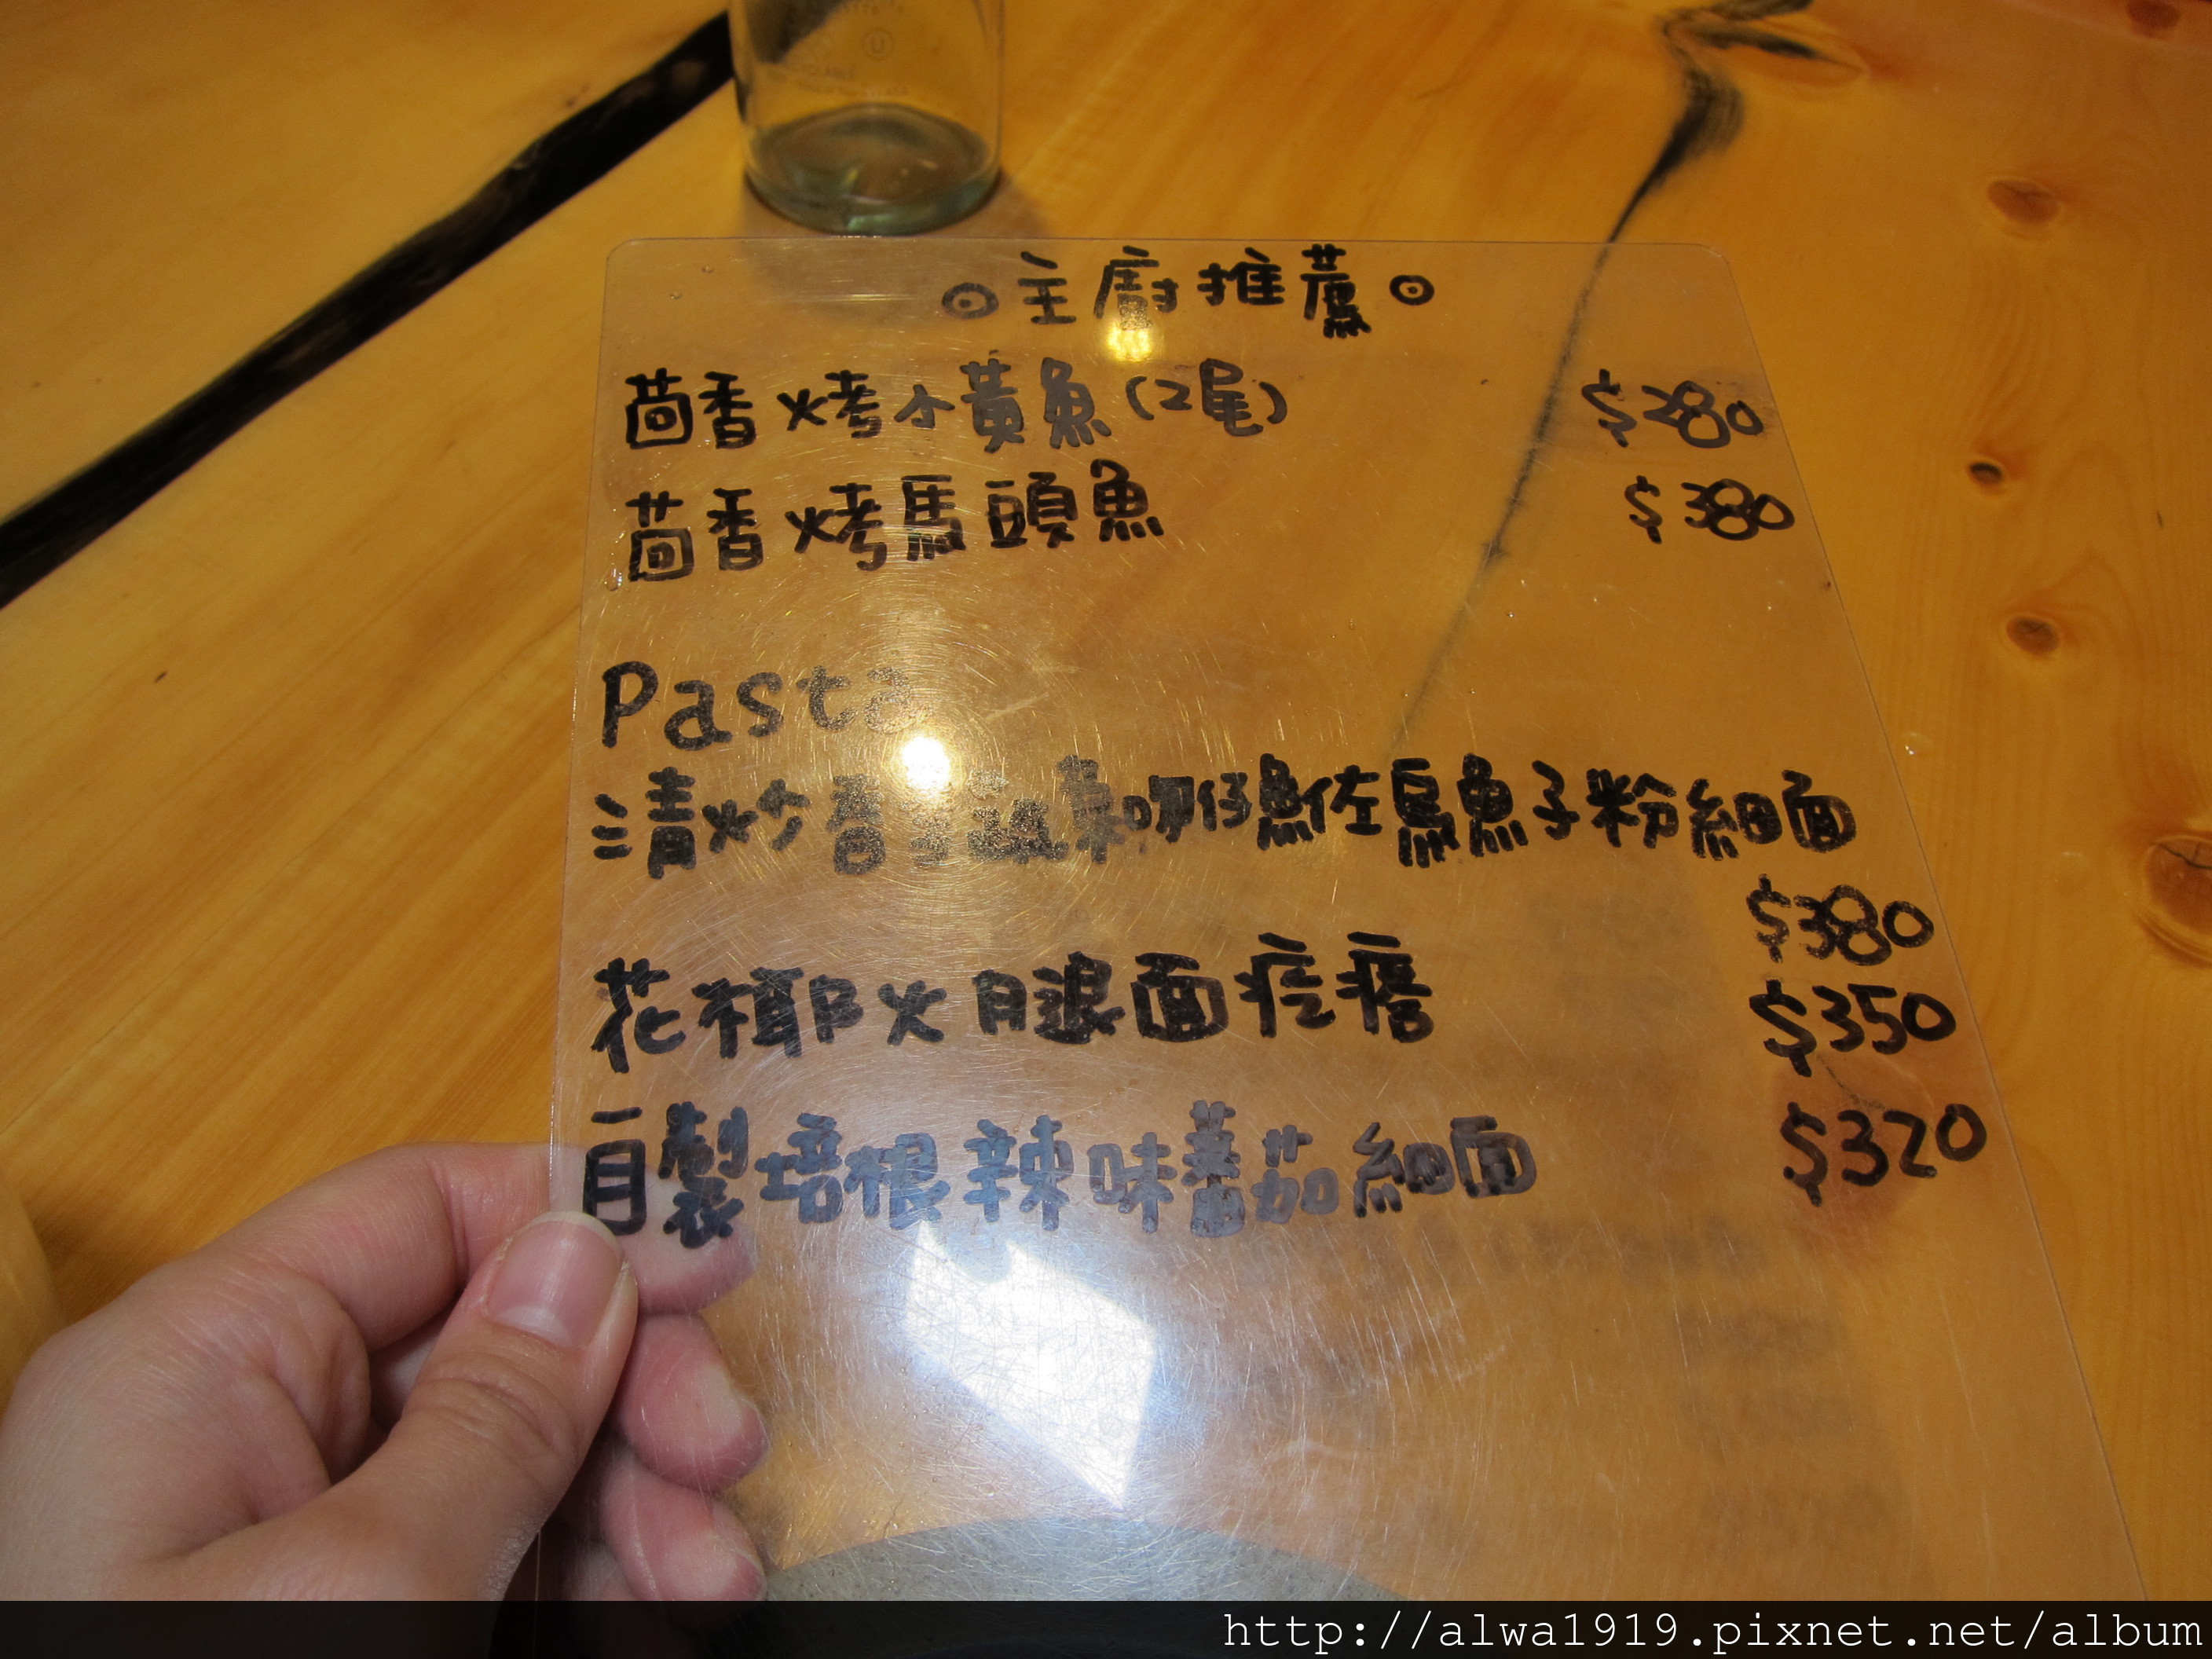 ⊙主廚推薦⊙
茴香烤小黃魚(2尾) $280
茴香烤馬頭魚 $380
Pasta
清炒香蔬菜吻仔魚佐烏魚子粉細面
$380
花椰火腿面疙瘩 $350
自製培根辣味蕃茄細面 $320
http://alwa1919.pixnet.net/album